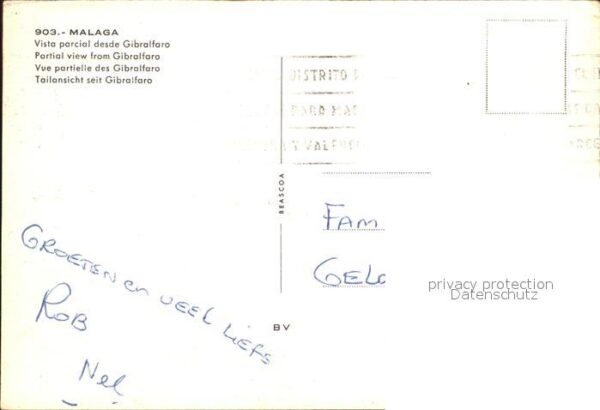 903.- MALAGA
Vista parcial desde Gibralfaro
Partial view from Gibralfaro
Vue partielle des Gibralfaro
Tailansicht seit Gibralfaro
DISTRITO
PARA MA
Y VALENC
BEASCOA
FAM
GELD
privacy protection
Datenschutz
GROETEN en VEEL LIEFS
ROB
Nel
BV